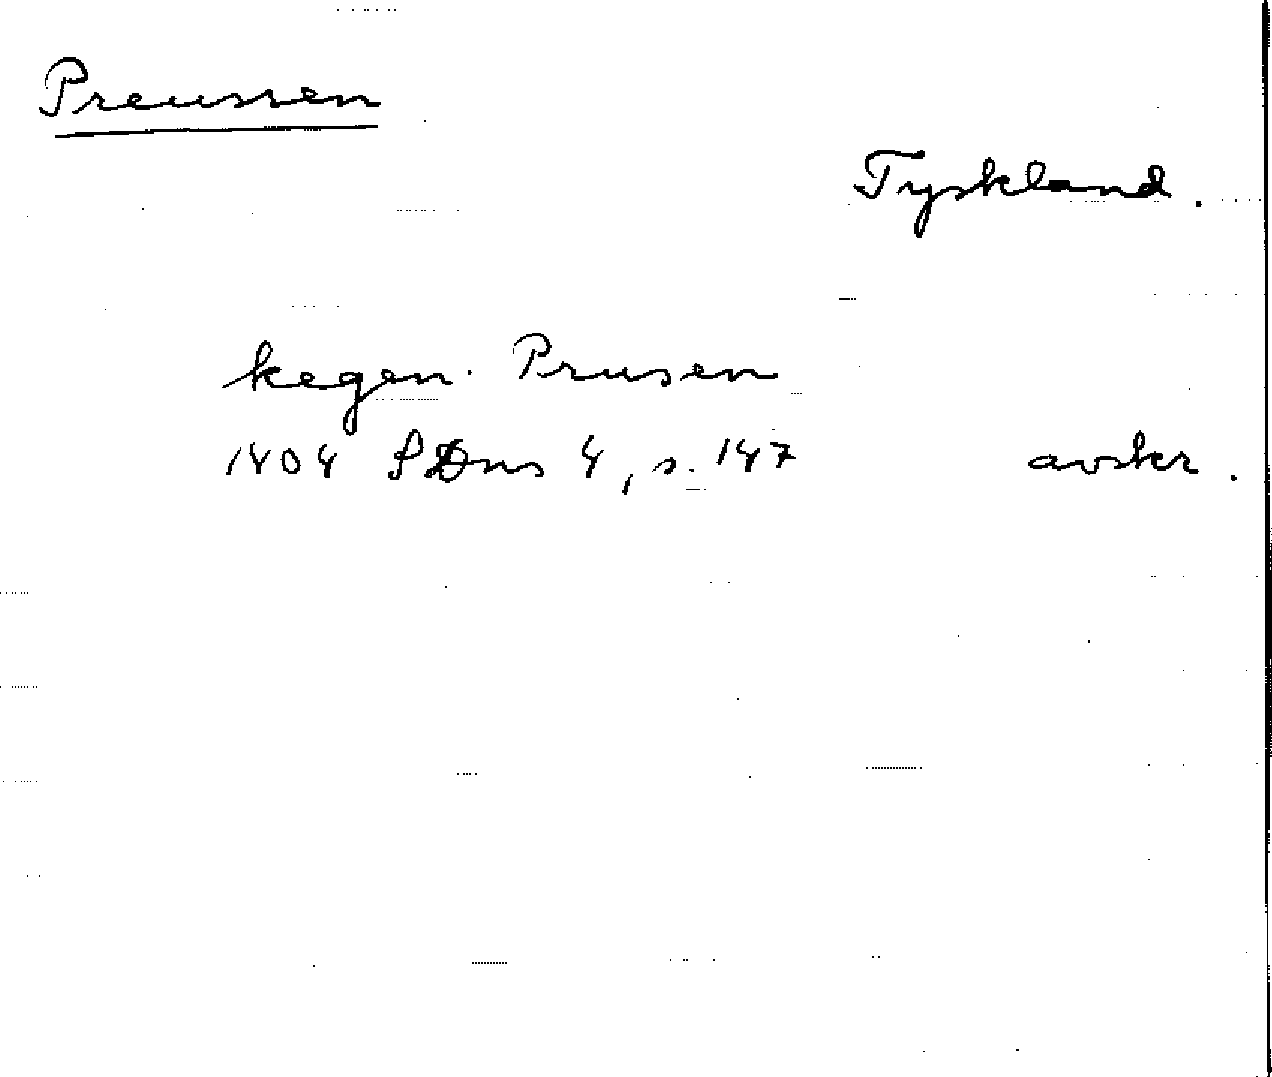 Preussen
Tyskland.
kegen Prusen
1404 SDns 4, s. 147 avskr.